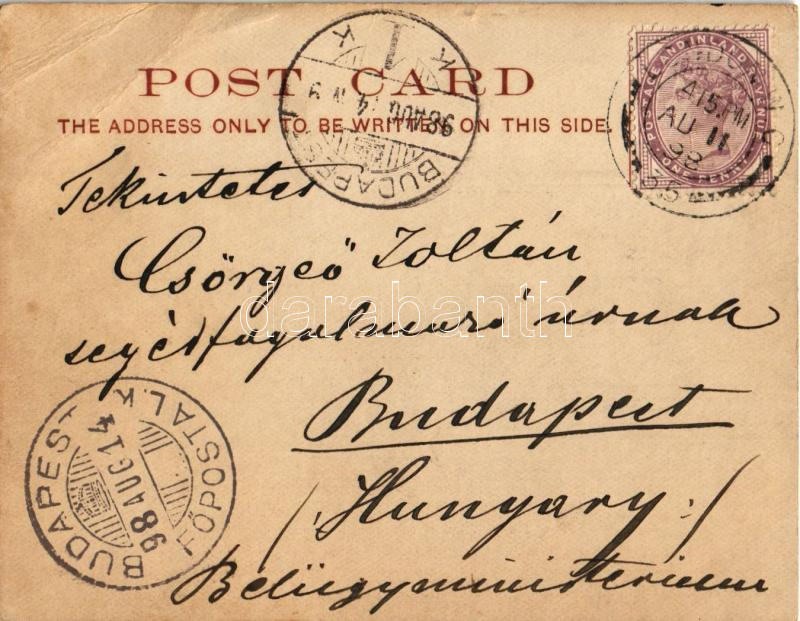 POST CARD
THE ADDRESS ONLY TO BE WRITTEN ON THIS SIDE.
POSTAGE AND INLAND REVENUE
ONE PENNY
4.15 PM
AU 11
98
BUDAPEST
98 AUG 14
Tekintetes
Csörgeő Zoltán
segédfogalmazó úrnak
Budapest
(Hungary)
Belügyministerium
BUDAPEST
FŐPOSTA I.K.
98 AUG 14
darabanth